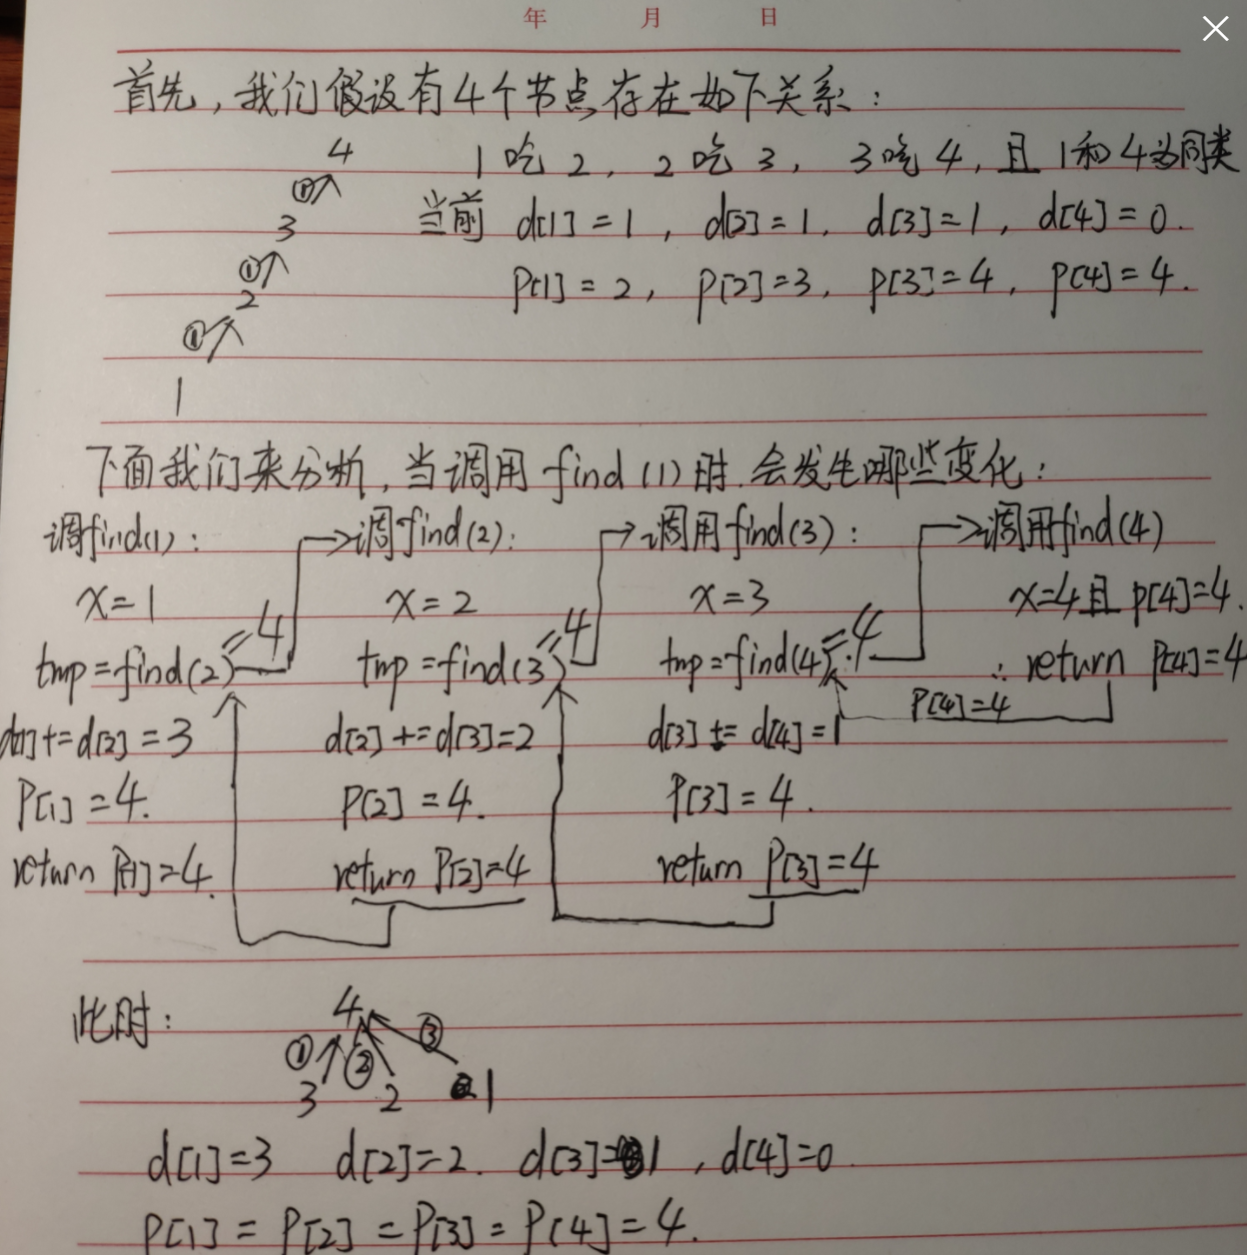 年 月 日
首先，我们假设有4个节点存在如下关系：
4
①
3
①
2
①
1
1吃2，2吃3，3吃4，且1和4为同类
当前 d[1]=1，d[2]=1，d[3]=1，d[4]=0.
p[1]=2，p[2]=3，p[3]=4，p[4]=4.
下面我们来分析，当调用find(1)时，会发生哪些变化：
调find(1)：
x=1
tmp=find(2)=4
d[1]+=d[2]=3
P[1]=4.
return P[1]=4.
调find(2)：
x=2
tmp=find(3)=4
d[2]+=d[3]=2
P[2]=4.
return P[2]=4
调用find(3)：
x=3
tmp=find(4)=4
d[3]+=d[4]=1
P[3]=4.
return P[3]=4
调用find(4)
x=4且p[4]=4.
∴ return P[4]=4
P[4]=4
此时：
4
① ② ③
3 2 1
d[1]=3 d[2]=2. d[3]=1，d[4]=0.
P[1]=P[2]=P[3]=P[4]=4.